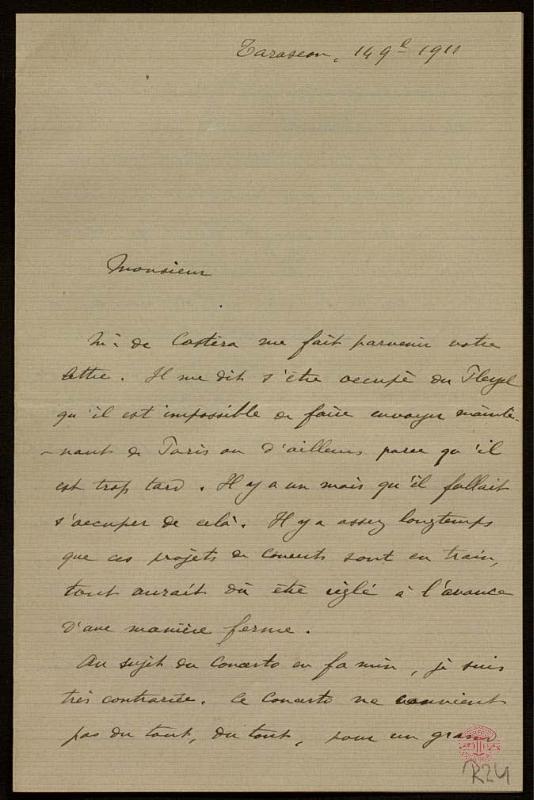 Tarascon, 14 9e 1911
Monsieur
Mr de Castéra me fait parvenir votre
lettre. Il me dit s'être occupé du Pleyel
qu'il est impossible de faire envoyer mainte-
-nant de Paris ou d'ailleurs parce qu'il
est trop tard. Il y a un mois qu'il fallait
s'occuper de celà. Il y a assez longtemps
que ces projets de concerts sont en train,
tout aurait dû être réglé à l'avance
d'une manière ferme.
Au sujet du Concerto en fa min, je suis
très contrariée. Ce Concerto ne convient
pas du tout, du tout, pour un grand
R24